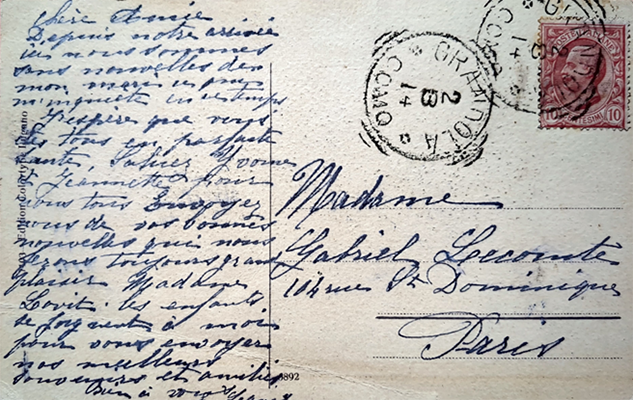 Chère Amie
Depuis notre arrivée
ici nous sommes
sans nouvelles de
mon mari ce que
m'inquiète en ce temps
J'espère que vous
êtes tous en parfaite
santé, Yvonne
et Jeannette pour
vous tous Envoyez
nous de vos bonnes
nouvelles que nous
ferons toujours grand
plaisir Madame
Lovit les enfants
se joignent à moi
pour vous envoyer
nos meilleurs
souvenirs et amitiés
Bien à vous
Madame
Gabriel Lecomte
104 rue St Dominique
Paris
GRANDOLA
COMO
2
8
14
POSTE ITALIANE
10 CENTESIMI 10
Edition
6892